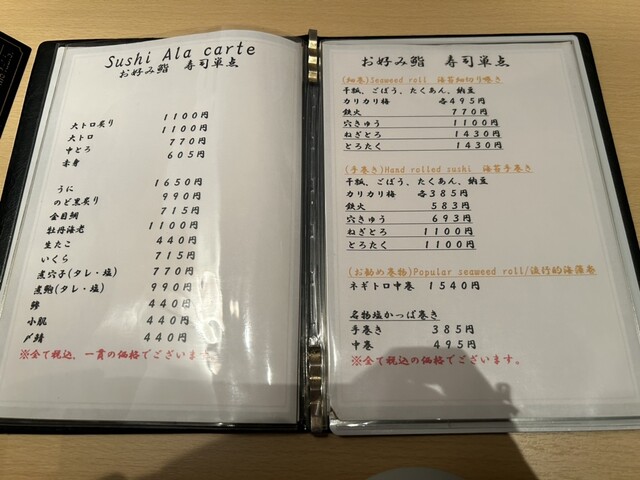 Sushi Ala carte
お好み鮨 寿司単点
大トロ炙り 1100円
大トロ 1100円
中とろ 770円
赤身 605円
うに 1650円
のど黒炙り 990円
金目鯛 715円
牡丹海老 1100円
生たこ 440円
いくら 715円
煮穴子(タレ・塩) 770円
煮鮑(タレ・塩) 990円
鯵 440円
小肌 440円
〆鯖 440円
※全て税込、一貫の価格でございます。
お好み鮨 寿司単点
(細巻)Seaweed roll 海苔細切り巻き
干瓢、ごぼう、たくあん、納豆
カリカリ梅 各495円
鉄火 770円
穴きゅう 1100円
ねぎとろ 1430円
とろたく 1430円
(手巻き)Hand rolled sushi 海苔手巻き
干瓢、ごぼう、たくあん、納豆
カリカリ梅 各385円
鉄火 583円
穴きゅう 693円
ねぎとろ 1100円
とろたく 1100円
(お勧め巻物)Popular seaweed roll/流行的海藻卷
ネギトロ中巻 1540円
名物塩かっぱ巻き
手巻き 385円
中巻 495円
※全て税込の価格でございます。